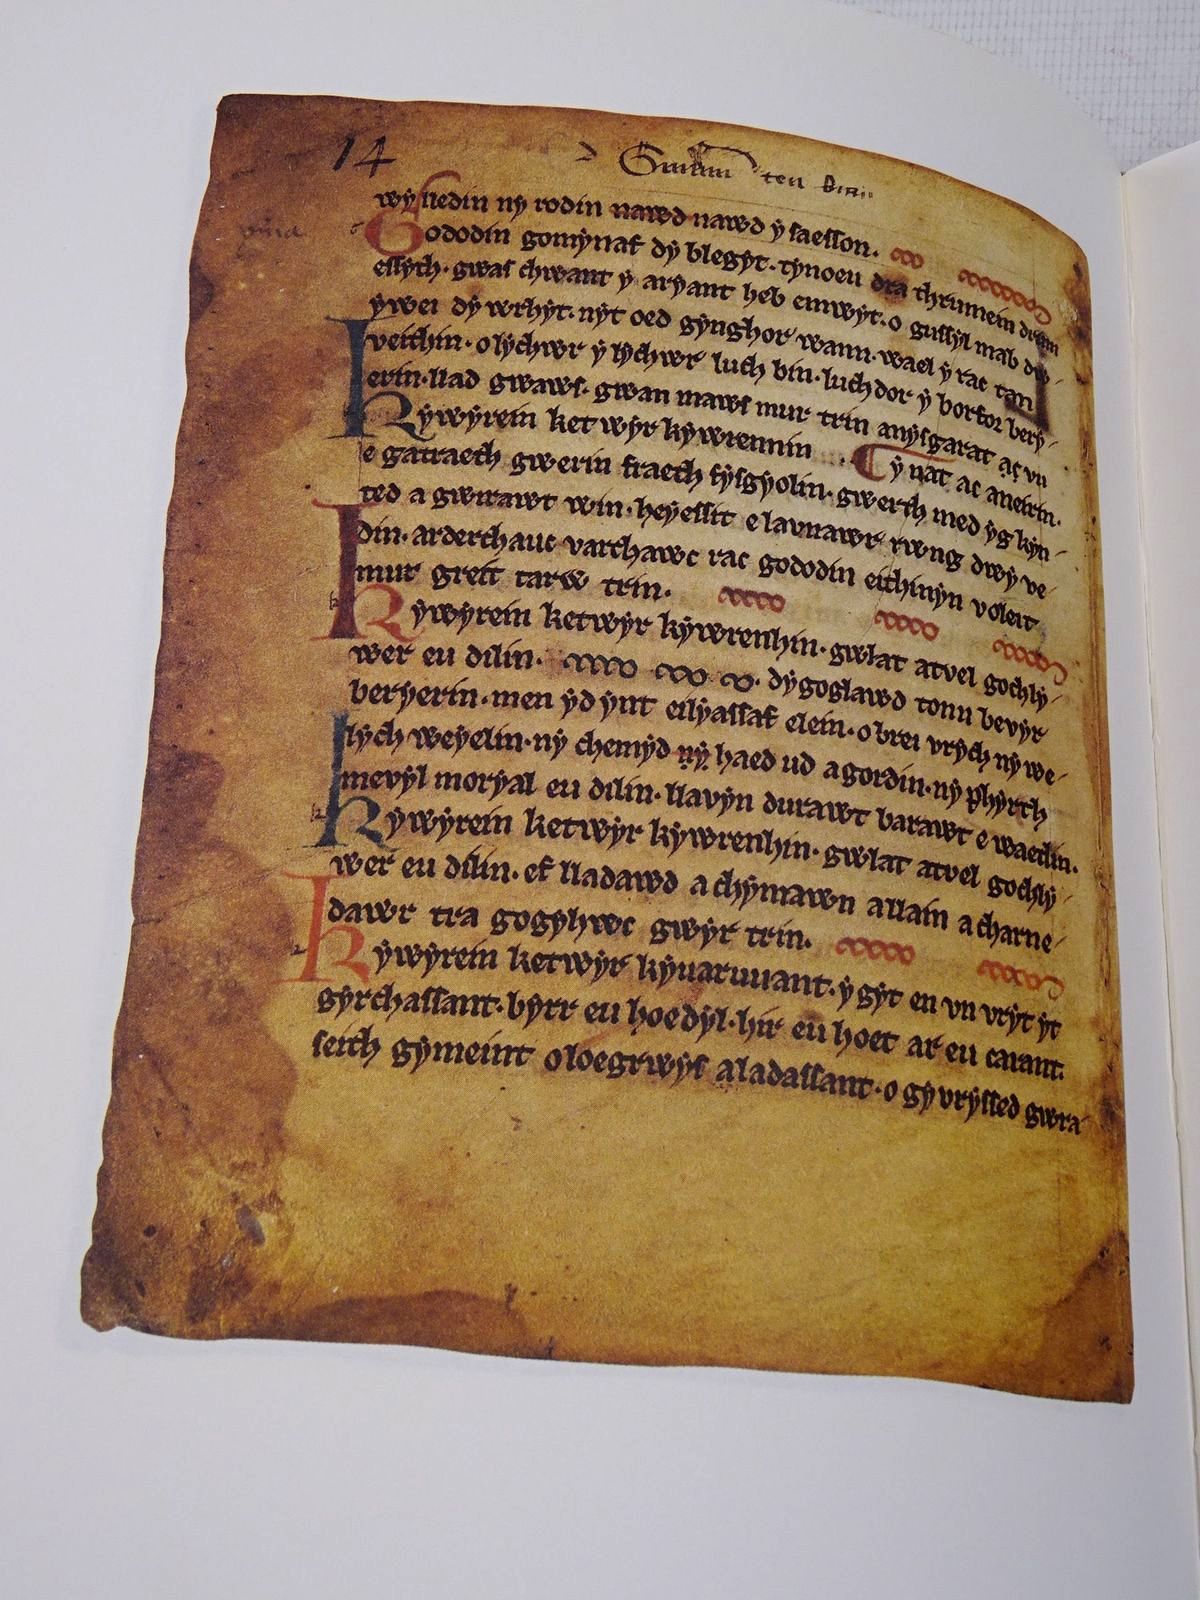 14
wyr nedin ny rodin nawd nawd y saesson.
Gododin gomynaf dy blegyt. tynoeu dra thrumein drum
essyth. gwas chwant y aryant heb emwyt. o gussyl mab dwy
ywei dy wrhyt. nyt oed gynghor wann. wael y rac tan
veithin. o lychwr y lychwr luch bin. luch dor y borfor bery
erin. llad gwaws. gwan maws mur trin anysgarat ac vu
y nat ac aneirin.
Rywyrein ket wyr kywrennin
e gatraeth gwerin fraeth fysgyolin. gwerth med yg kyn
ted a gwirawt win. heyessit e lavnawr rwng dwy ve
din. arderchauc varchawc rac gododin eithinyn voleit
mur greit tarw trin.
Rywyrein ketwyr kywrenhin. gwlat atvel gochly
wer eu dilin. dygoglawd tonn bevyr
beryerin. men yd ynt eilyassaf elein. o brei vrych ny we
lych weyelin. ny chemyd ny haed ud a gordin. ny phyrth
mevyl moryal eu dilin. llavyn durawt barawt e waedlin.
Rywyrein ketwyr kywrenhin. gwlat atvel gochly
wer eu dilin. ef lladawd a chymawn allain a charne
dawr tra gogyhwc gwyr trin.
Rywyrein ketwyr kyuaruuant. y gyt en vn vryt yt
gyrchassant. byrr eu hoedyl. hir eu hoet ar eu carant.
seith gymeint o loegrwys a ladassant. o gyvryssed gwra